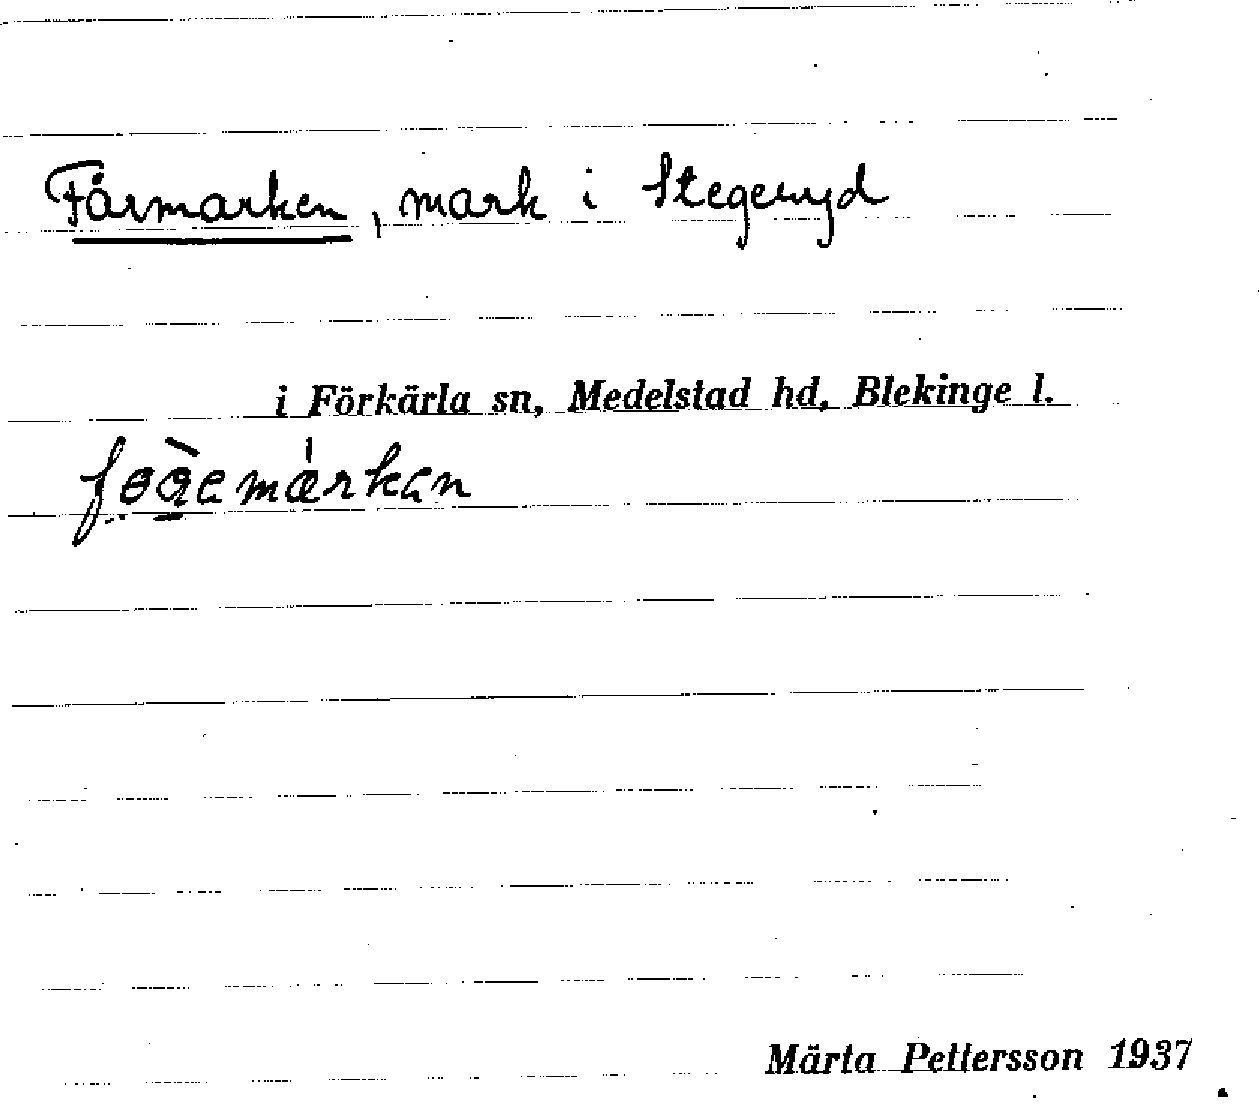 Fårmarken, mark i Stegeryd
i Förkärla sn, Medelstad hd, Blekinge l.
Märta Pettersson 1937